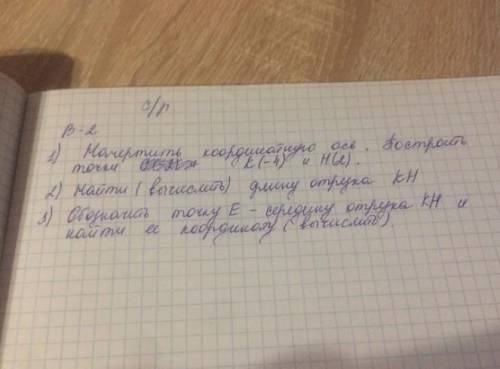 с/р
В-2
1) Начертить координатную ось. Построить
точки К(-4) и Н(2).
2) Найти (вычислить) длину отрезка КН
3) Обозначить точку Е - середину отрезка КН и
найти ее координату (вычислить).